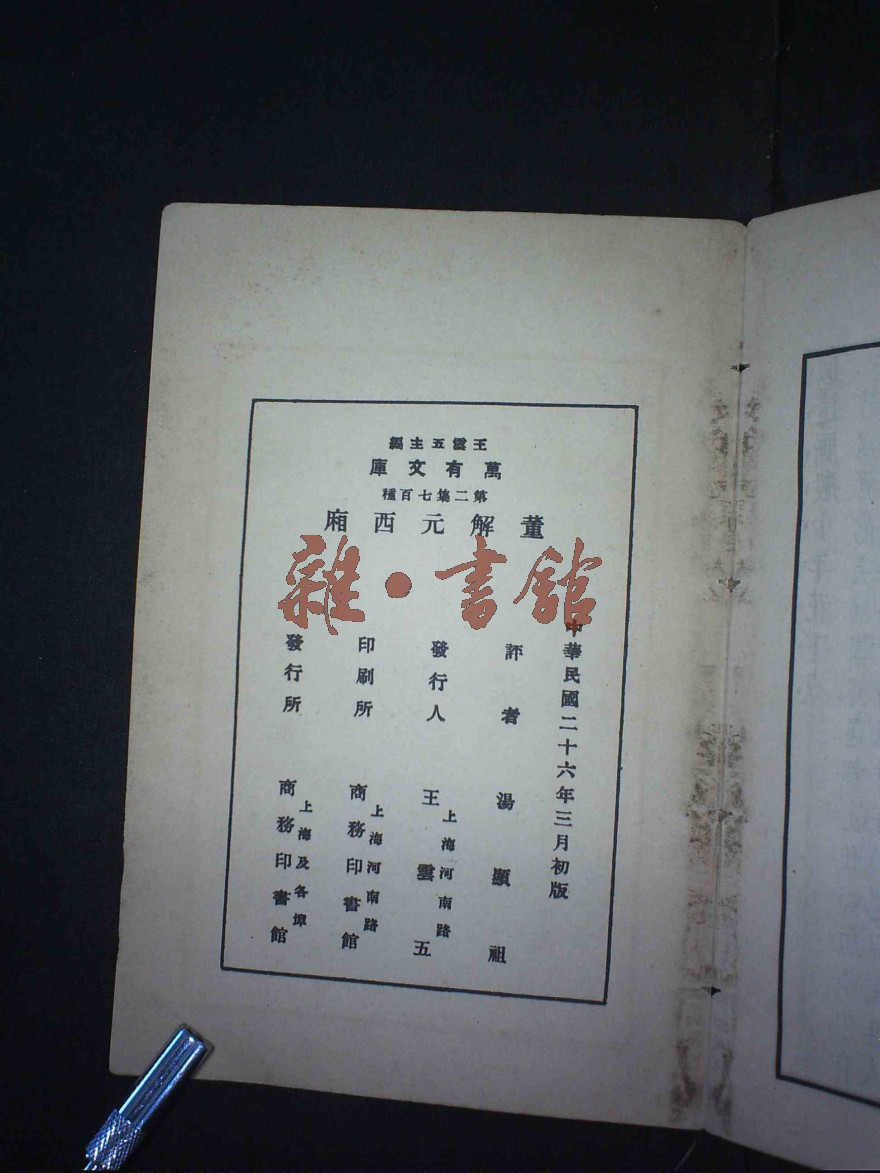 王雲五主編
萬有文庫
第二集七百種
董解元西廂
雜•書館
中華民國二十六年三月初版
評者 湯顯祖
發行人 王雲五
上海河南路
印刷所 商務印書館
上海河南路
發行所 商務印書館
上海及各埠